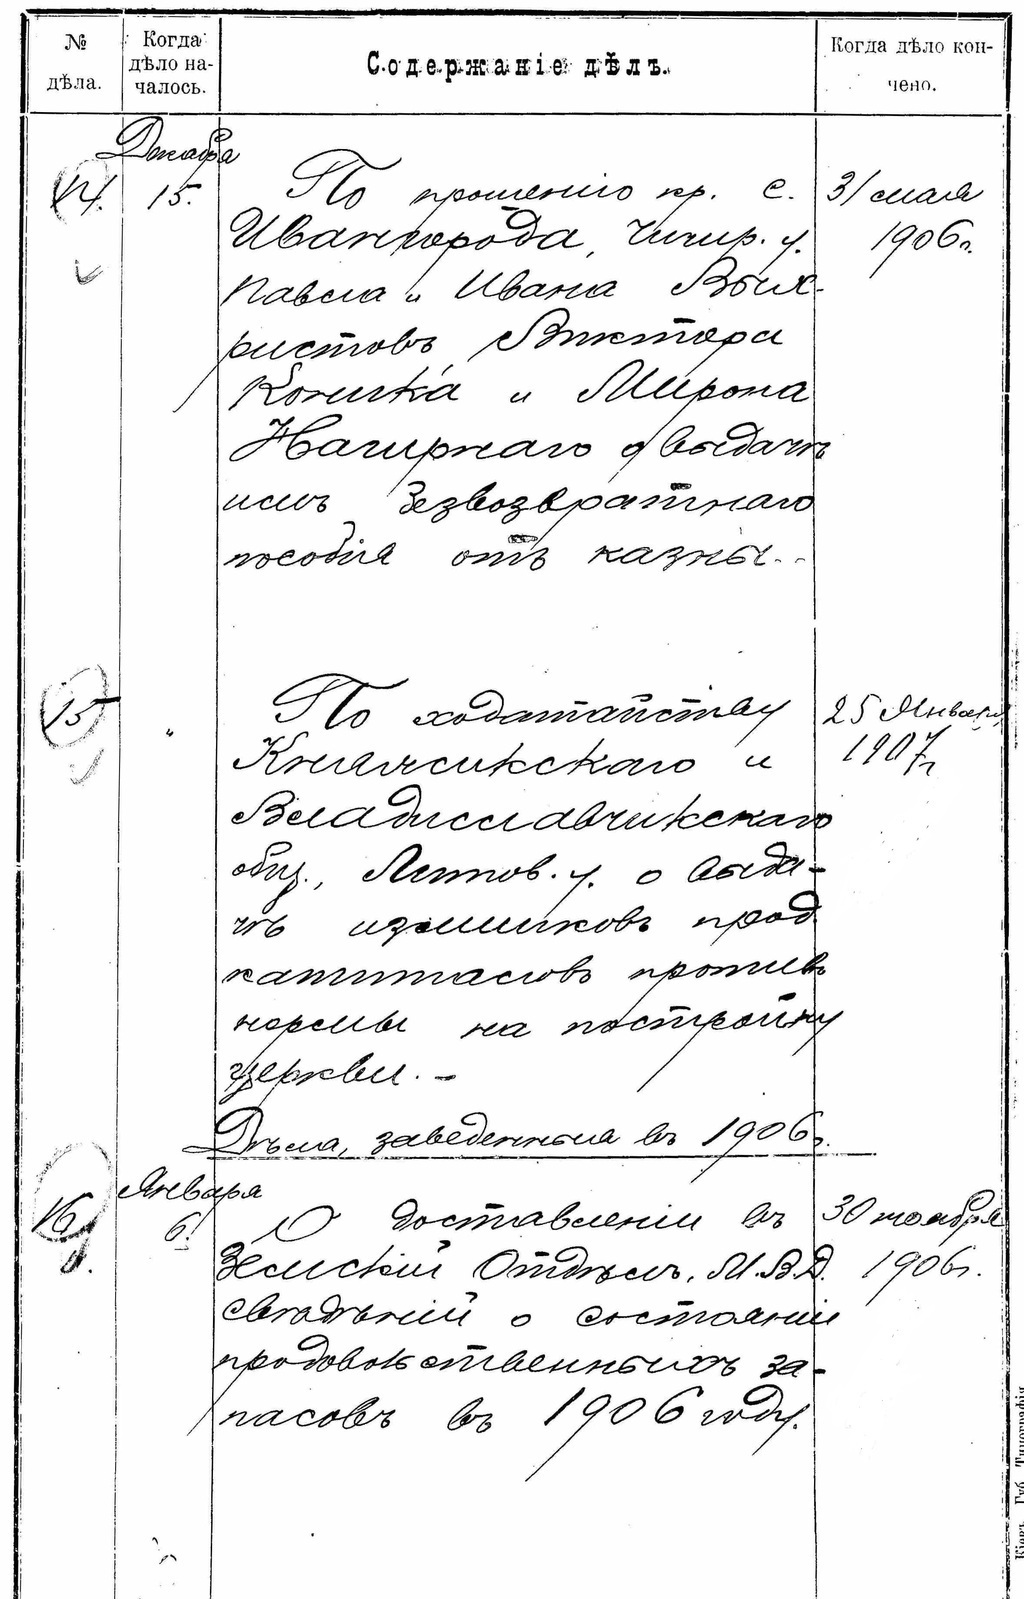 № дѣла.
Когда дѣло на-
чалось.
Содержаніе дѣлъ.
Когда дѣло кон-
чено.
Декабря
14. 15. По прошенію кр. с. 31 мая
Ивангорода, Чигир. у. 1906 г.
Павла и Ивана Вых-
ристовъ Виктора
и Мирона
Нагирнаго о выдачѣ
имъ безвозвратнаго
пособія отъ казны.
15 " По ходатайству 25 Января
Княжикскаго и 1907 г.
Владиславчикскаго
общ., Липов. у. о выда-
чѣ излишковъ прод.
капиталовъ противъ
нормы на постройку
церкви. –
Дѣла, заведенныя въ 1906 г.
Января
16 6. О доставленіи въ 30 ноября
Земскій Отдѣлъ, М.В.Д. 1906 г.
свѣдѣній о состояніи
продовольственныхъ за-
пасовъ въ 1906 году.
Кіевъ, Губ. Типографія